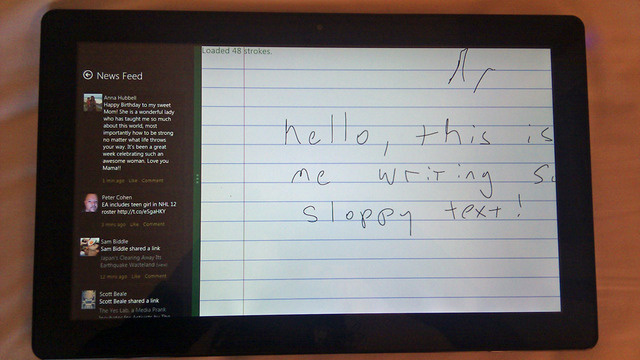 News Feed
Anna Hubbell
Happy Birthday to my sweet
Mom! She is a wonderful lady
who has taught me so much
about this world, most
importantly how to be strong
no matter what life throws
your way. It's been a great
week celebrating such an
awesome woman. Love you
Mama!!
5 min ago Like Comment
Peter Cohen
EA includes teen girl in NHL 12
roster http://t.co/eSgaHKY
5 mins ago Like Comment
Sam Biddle
Sam Biddle shared a link
Japan's Clearing Away Its
Earthquake Wasteland
12 mins ago Like Comment
Scott Beale
Scott Beale shared a link
The Yes Lab, a Media Prank
Loaded 48 strokes.
hello, this is
me writing
sloppy text!